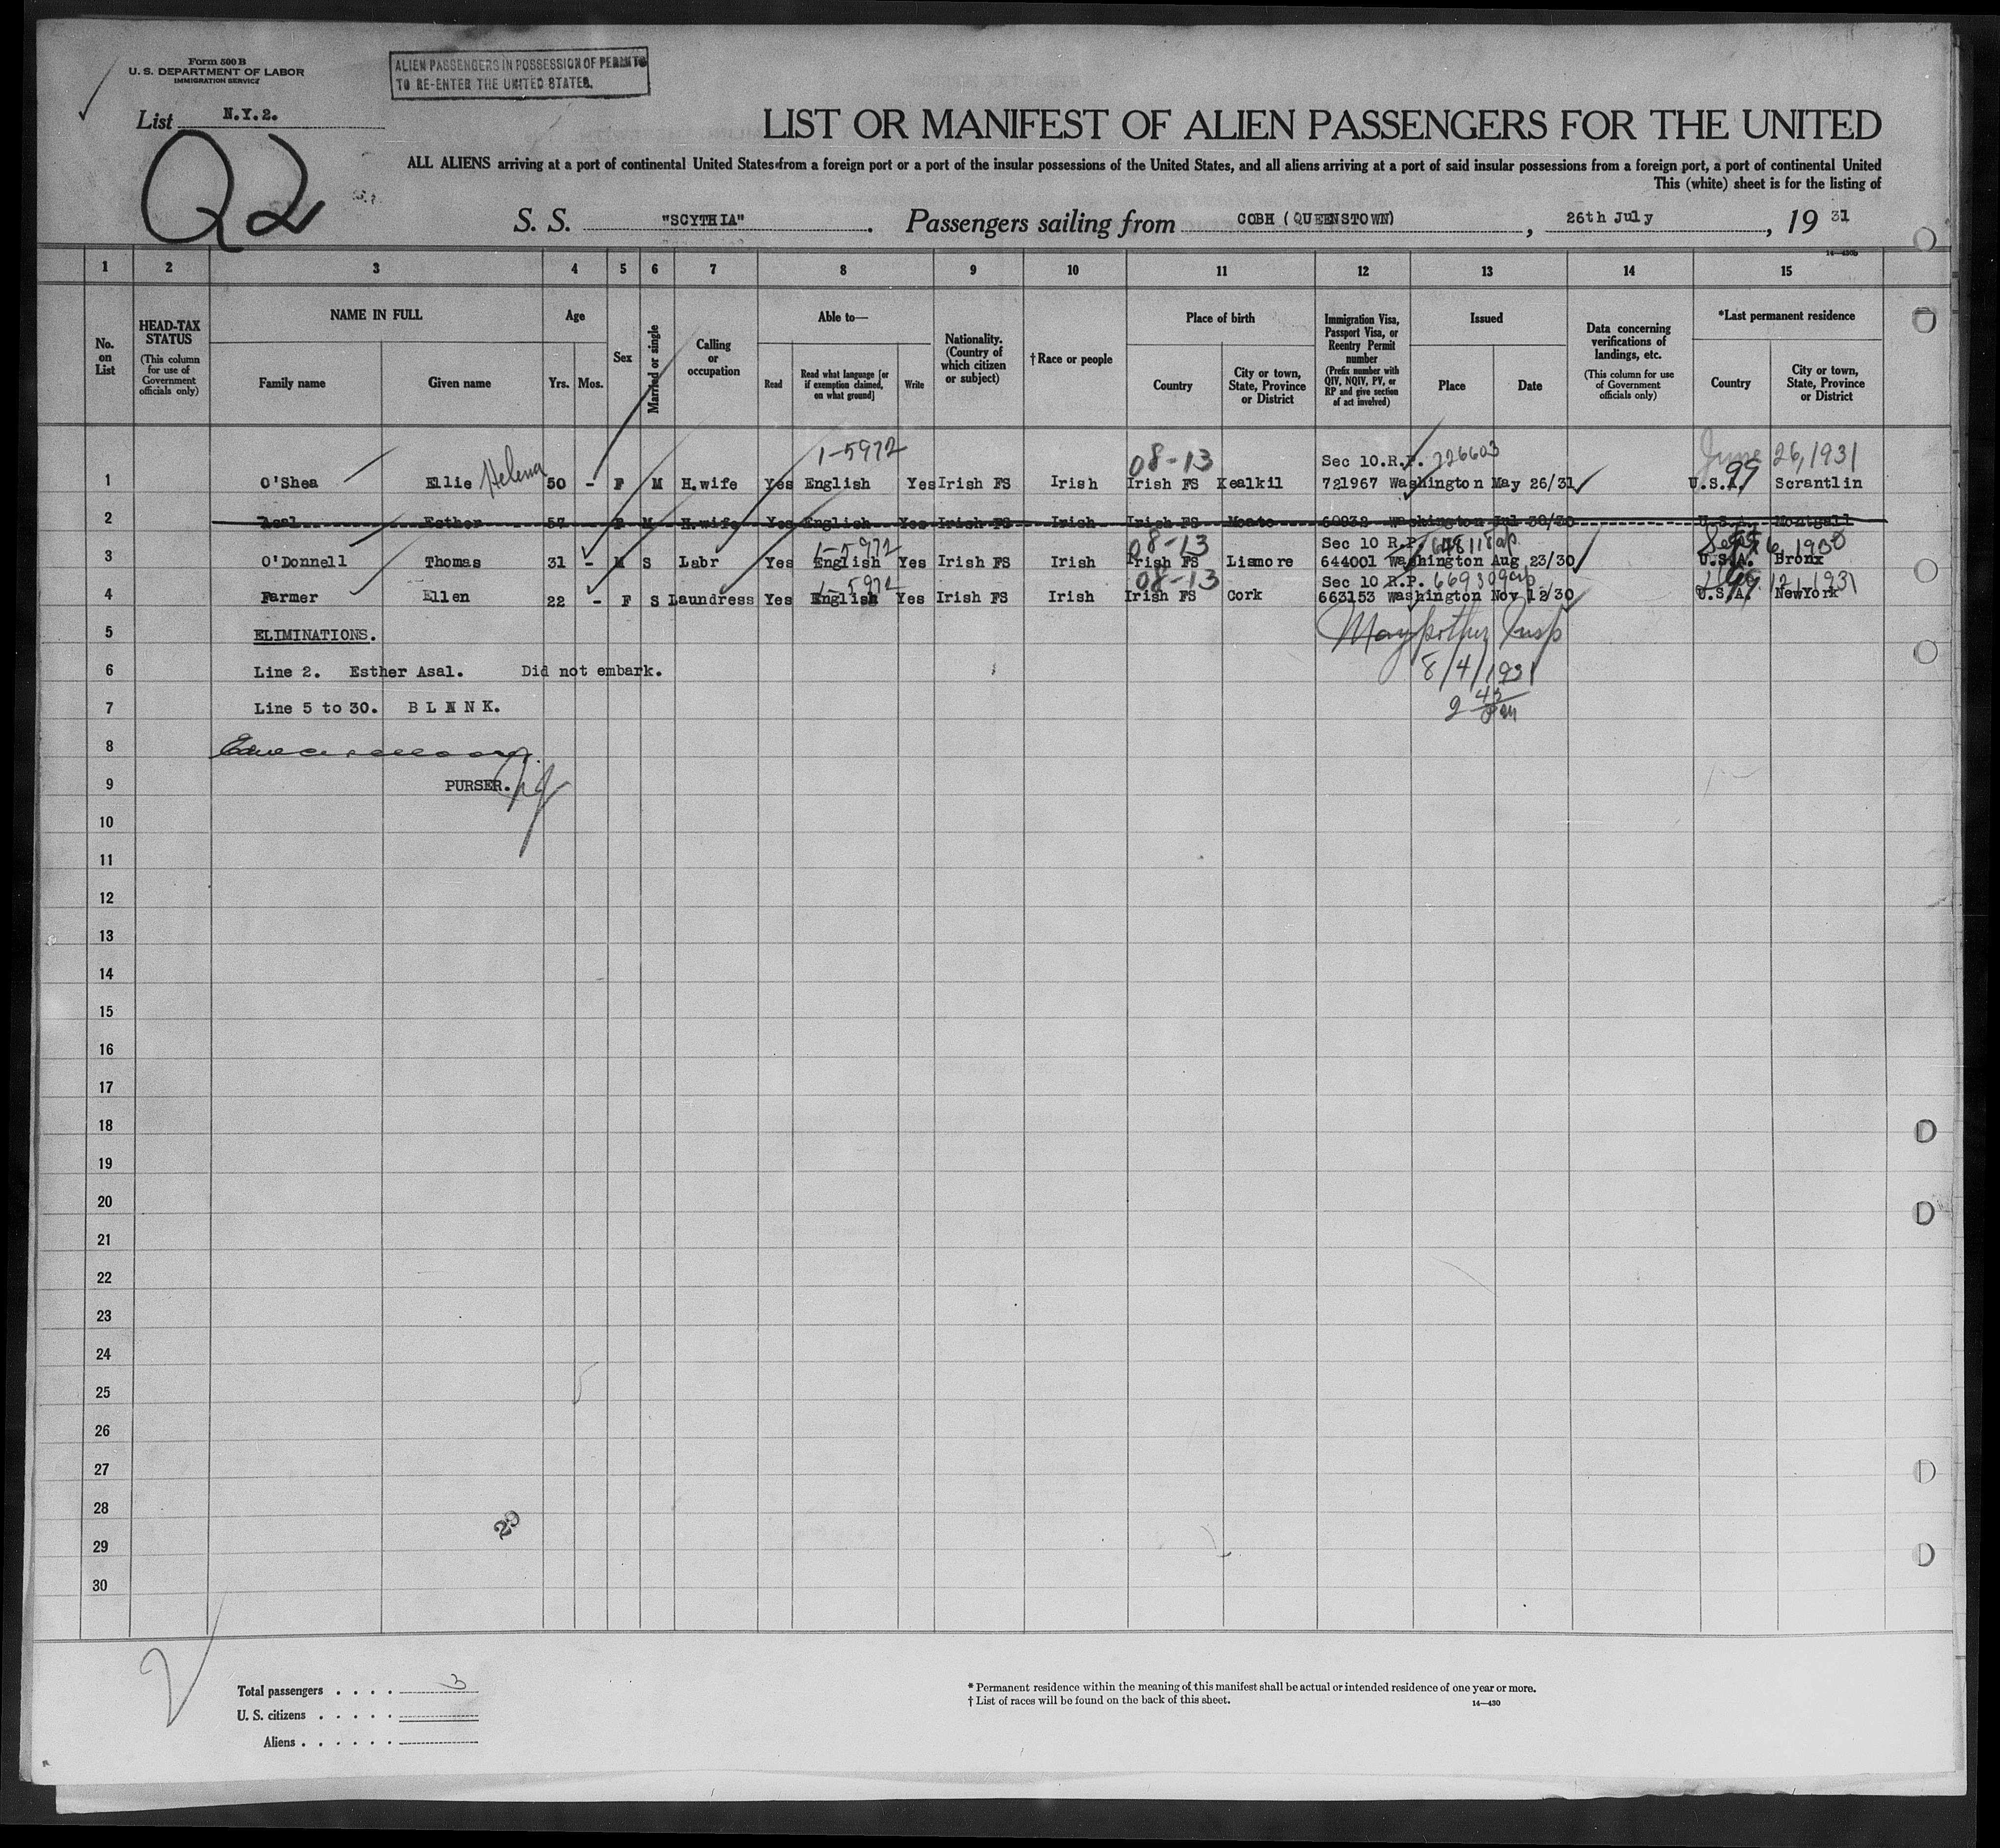 Form 500 B
U. S. DEPARTMENT OF LABOR
IMMIGRATION SERVICE
ALIEN PASSENGERS IN POSSESSION OF PERMITS
TO RE-ENTER THE UNITED STATES.
List N.Y.2.
Q2
LIST OR MANIFEST OF ALIEN PASSENGERS FOR THE UNITED
ALL ALIENS arriving at a port of continental United States from a foreign port or a port of the insular possessions of the United States, and all aliens arriving at a port of said insular possessions from a foreign port, a port of continental United
This (white) sheet is for the listing of
S. S. "SCYTHIA". Passengers sailing from COBH (QUEENSTOWN), 26th July, 19 31
14-430b
1 2 3 4 5 6 7 8 9 10 11 12 13 14 15
No. on List
HEAD-TAX STATUS
(This column for use of Government officials only)
NAME IN FULL
Family name Given name
Age
Yrs. Mos.
Sex
Married or single
Calling or occupation
Able to—
Read
Read what language [or if exemption claimed, on what ground]
Write
Nationality. (Country of which citizen or subject)
†Race or people
Place of birth
Country
City or town, State, Province or District
Immigration Visa, Passport Visa, or Reentry Permit number
(Prefix number with QIV, NQIV, PV, or RP and give section of act involved)
Issued
Place Date
Data concerning verifications of landings, etc.
(This column for use of Government officials only)
*Last permanent residence
Country
City or town, State, Province or District
1-5972 08-13 Sec 10.R.P. 226603 June 26, 1931
1 O'Shea Ellie Helena 50 - F M H.wife Yes English Yes Irish FS Irish Irish FS Kealkil 721967 Washington May 26/31 U.S.A. 99 Scrantlin
2 Asal Esther 57 F M H.wife Yes English Yes Irish FS Irish Irish FS Moate 60932 Washington Jul 30/30 U.S.A. Montgall
1-5972 08-13 Sec 10 R.P. Sept 6, 1930
3 O'Donnell Thomas 31 - M S Labr Yes English Yes Irish FS Irish Irish FS Lismore 644001 Washington Aug 23/30 U.S.A. Bronx
1-5972 08-13 Sec 10 R.P. 669309 12, 1931
4 Farmer Ellen 22 - F S Laundress Yes English Yes Irish FS Irish Irish FS Cork 663153 Washington Nov 12/30 U.S.A. NewYork
5 ELIMINATIONS.
Insp
6 Line 2. Esther Asal. Did not embark.
8/4/1931
7 Line 5 to 30. BLANK.
2 42 PM
8
9 PURSER.
10
11
12
13
14
15
16
17
18
19
20
21
22
23
24
25
26
27
28
29
29
30
Total passengers . . . . 3
U. S. citizens . . . . .
Aliens . . . . . .
* Permanent residence within the meaning of this manifest shall be actual or intended residence of one year or more.
† List of races will be found on the back of this sheet.
14—430